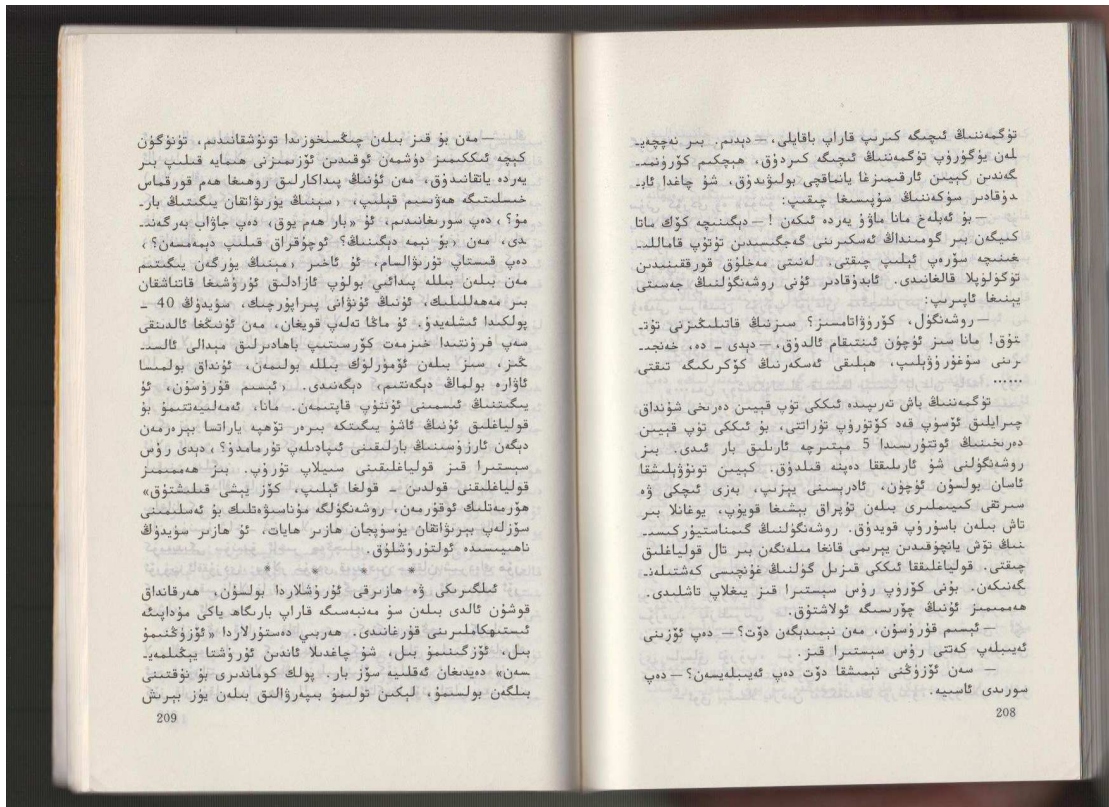 تۈگمەننىڭ ئىچىگە كىرىپ قاراپ باقايلى، — دېدىم. بىر نەچچەيـ
لەن يۈگۈرۈپ تۈگمەننىڭ ئىچىگە كىردۇق، ھېچكىم كۆرۈنمىـ
گەندىن كېيىن ئارقىمىزغا يانماقچى بولۇۋىدۇق، شۇ چاغدا ئابـ
دۇقادىر سۆكەننىڭ سۇپىسىغا چىقىپ:
— بۇ ئەبلەخ مانا ماۋۇ يەردە ئىكەن! — دېگىنىچە كۆك ماتا
كىيگەن بىر گومىنداڭ ئەسكىرىنى گەجگىسىدىن تۇتۇپ قاماللىـ
غىنىچە سۆرەپ ئېلىپ چىقتى، لەنىتى مەخلۇق قورققىنىدىن
تۈگۈلۈپلا قالغانىدى. ئابدۇقادىر ئۇنى روشەنگۈلنىڭ جەسىتى
يېنىغا ئاپىرىپ:
— روشەنگۈل، كۆرۈۋاتامسىز؟ سىزنىڭ قاتىلىڭىزنى تۇتـ
تۇق! مانا سىز ئۈچۈن ئىنتىقام ئالدۇق، — دېدى ـ دە، خەنجىـ
رىنى سۇغۇرۇۋېلىپ، ھېلىقى ئەسكەرنىڭ كۆكرىكىگە تىقتى
......
تۈگمەننىڭ باش تەرىپىدە ئىككى تۈپ قېيىن دەرىخى شۇنداق
چىرايلىق ئۆسۈپ قەد كۆتۈرۈپ تۇراتتى، بۇ ئىككى تۈپ قېيىن
دەرىخىنىڭ ئوتتۇرىسىدا 5 مېتىرچە ئارىلىق بار ئىدى. بىز
روشەنگۈلنى شۇ ئارىلىققا دەپنە قىلدۇق. كېيىن تونۇۋېلىشقا
ئاسان بولسۇن ئۈچۈن، ئادرېسىنى يېزىپ، بەزى ئىچكى ۋە
سىرتقى كىيىملىرى بىلەن تۇپراق بېشىغا قويۇپ، يوغانلا بىر
تاش بىلەن باسۇرۇپ قويدۇق. روشەنگۈلنىڭ گىمناستيۇركىسىـ
نىڭ تۆش يانچۇقىدىن يېرىمى قانغا مىلەنگەن بىر تال قولياغلىق
چىقتى. قولياغلىققا ئىككى قىزىل گۈلنىڭ غۇنچىسى كەشتىلەنـ
گەنىكەن. بۇنى كۆرۈپ رۇس سېستىرا قىز يىغلاپ تاشلىدى.
ھەممىمىز ئۇنىڭ چۆرىسىگە ئولاشتۇق.
— ئېسىم قۇرۇسۇن، مەن نېمىدېگەن دۆت؟ — دەپ ئۆزىنى
ئەيىبلەپ كەتتى رۇس سېستىرا قىز.
— سەن ئۆزۈڭنى نېمىشقا دۆت دەپ ئەيىبلەيسەن؟ — دەپ
سورىدى ئاسىيە.
208
— مەن بۇ قىز بىلەن چىڭسىخوزىدا تونۇشقانىدىم، تۈنۈگۈن
كېچە ئىككىمىز دۈشمەن ئوقىدىن ئۆزىمىزنى ھىمايە قىلىپ بىر
يەردە ياتقانىدۇق، مەن ئۇنىڭ پىداكارلىق روھىغا ھەم قورقماس
خىسلىتىگە ھەۋىسىم قېلىپ، ‹سېنىڭ يۈرىۋاتقان يىگىتىڭ بارـ
مۇ؟› دەپ سورىغانىدىم، ئۇ «بار ھەم يوق، دەپ جاۋاب بەرگەنـ
دى، مەن ‹بۇ نېمە دېگىنىڭ؟ ئوچۇقراق قىلىپ دېمەمسەن؟›
دەپ قىستاپ تۇرىۋالسام، ئۇ ئاخىر ‹مېنىڭ يۈرگەن يىگىتىم
مەن بىلەن بىللە پىدائىي بولۇپ ئازادلىق ئۇرۇشىغا قاتناشقان
بىر مەھەللىلىك، ئۇنىڭ ئۇنۋانى پىراپورچىك، سۈيدۈڭ 40 ـ
پولكىدا ئىشلەيدۇ، ئۇ ماڭا تەلەپ قويغان، مەن ئۇنىڭغا ئالدىنقى
سەپ فرونتىدا خىزمەت كۆرسىتىپ باھادىرلىق مېدالى ئالسىـ
ڭىز، سىز بىلەن ئۆمۈرلۈك بىللە بولىمەن، ئۇنداق بولمىسا
ئاۋارە بولماڭ دېگەنتىم، دېگەنىدى. ‹ئېسىم قۇرۇسۇن، ئۇ
يىگىتنىڭ ئىسمىنى ئۇنتۇپ قاپتىمەن. مانا، ئەمەلىيەتتىمۇ بۇ
قولياغلىق ئۇنىڭ ئاشۇ يىگىتكە بىرەر تۆھپە ياراتسا بېرەرمەن
دېگەن ئارزۇسىنىڭ بارلىقىنى ئىپادىلەپ تۇرمامدۇ؟› دېدى رۇس
سېستىرا قىز قولياغلىقنى سىيلاپ تۇرۇپ. بىز ھەممىمىز
قولياغلىقنى قولدىن ـ قولغا ئېلىپ، كۆز يېشى قىلىشتۇق»
ھۆرمەتلىك ئوقۇرمەن، روشەنگۈلگە مۇناسىۋەتلىك بۇ ئەسلىمىنى
سۆزلەپ بېرىۋاتقان يۈسۈپجان ھازىر ھايات، ئۇ ھازىر سۈيدۈڭ
ناھىيىسىدە ئولتۇرۇشلۇق.
* * * *
ئىلگىرىكى ۋە ھازىرقى ئۇرۇشلاردا بولسۇن، ھەرقانداق
قوشۇن ئالدى بىلەن سۇ مەنبەسىگە قاراپ بارىگاھ ياكى مۇداپىئە
ئىستىھكاملىرىنى قۇرغانىدى. ھەربىي دەستۇرلاردا «ئۆزۈڭنىمۇ
بىل، ئۆزگىنىمۇ بىل، شۇ چاغدىلا ئاندىن ئۇرۇشتا يېڭىلمەيـ
سەن» دەيدىغان ئەقلىيە سۆز بار. پولك كوماندىرى بۇ نۇقتىنى
بىلگەن بولسىمۇ، لېكىن تولىمۇ بىپەرۋالىق بىلەن يۈز بېرىش
209